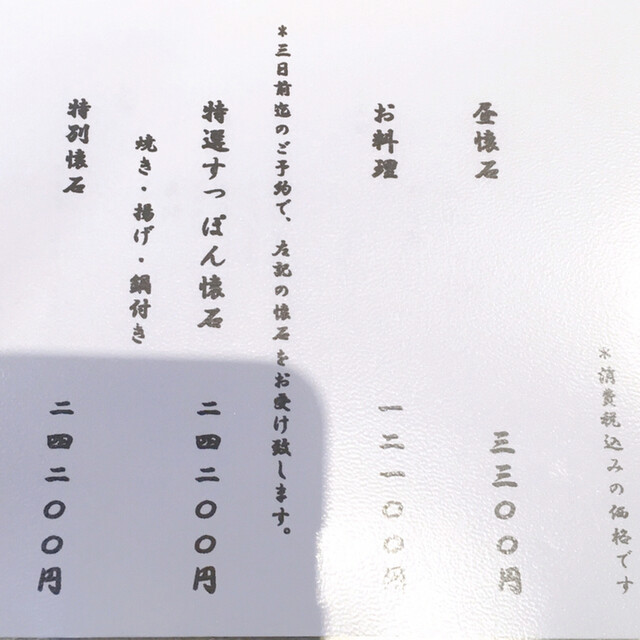 *消費税込みの価格です
昼懐石 三三〇〇円
お料理 一二一〇〇円
*三日前迄のご予約で、左記の懐石をお受け致します。
特選すっぽん懐石 二四二〇〇円
焼き・揚げ・鍋付き
特別懐石 二四二〇〇円